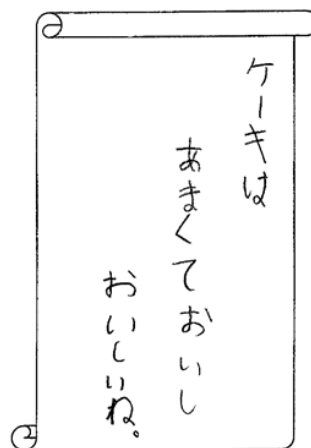 ケーキは
あまくておいし
おいしいね。